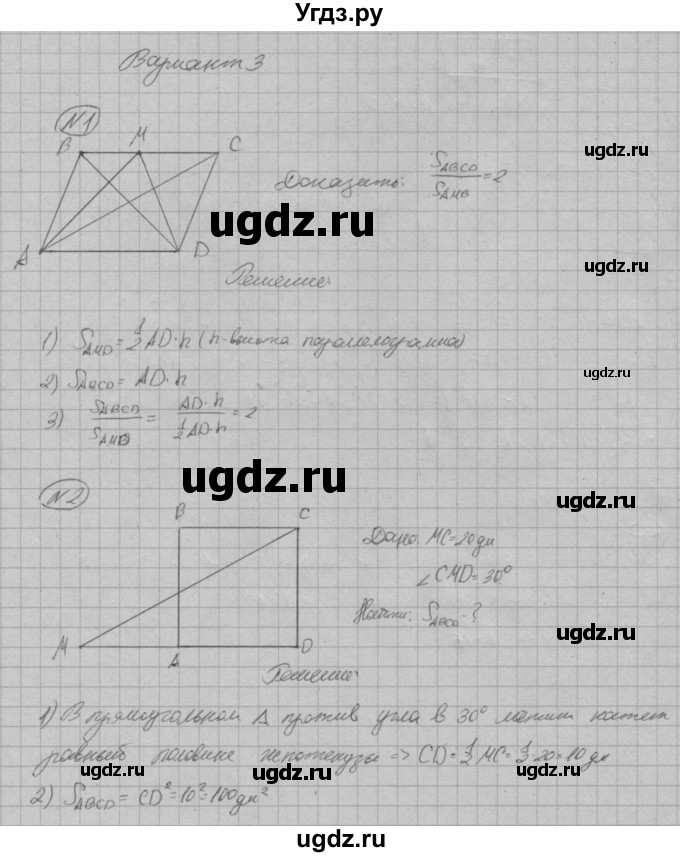 Угдз.ру
Вариант 3
№1
B M C
ugdz.ru
Доказать: S_ABCD / S_AMB = 2
ugdz.ru
A D
ugdz.ru
Решение:
1) S_AMD = 1/2 AD · h (h - высота параллелограмма)
ugdz.ru
2) S_ABCD = AD · h
3) S_ABCD / S_AMD = AD · h / 1/2 AD · h = 2
ugdz.ru
№2
ugdz.ru
B C
Дано: MC = 20 дм
∠CMD = 30°
Найти: S_ABCD - ?
ugdz.ru
M A D
Решение:
1) В прямоугольном Δ против угла в 30° лежит катет
равный половине гипотенузы => CD = 1/2 MC = 1/2 · 20 = 10 дм
ugdz.ru
ugdz.ru
2) S_ABCD = CD² = 10² = 100 дм²
ugdz.ru